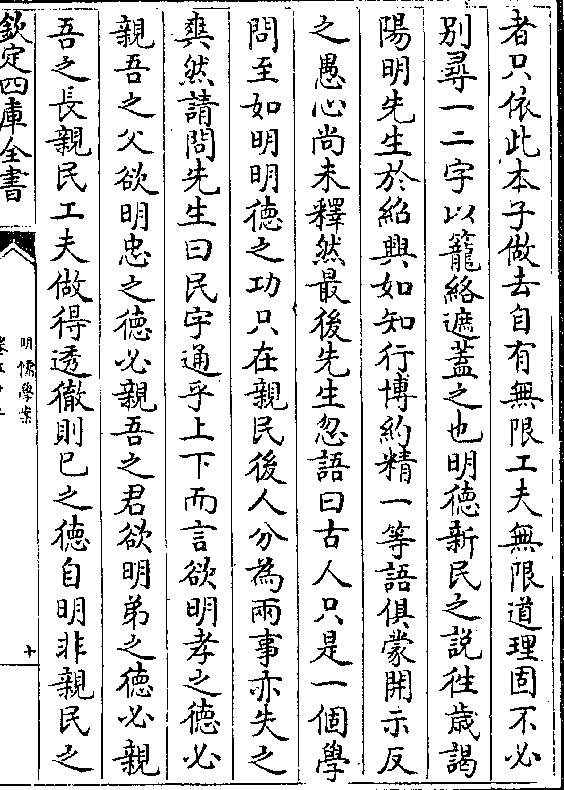 者只依此本子做去自有無限工夫無限道理固不必
別尋一二字以籠絡遮蓋之也明德新民之説徃歳謁
陽明先生於紹興如知行博約精一等語俱蒙開示反
之愚心尚未釋然最後先生忽語曰古人只是一個學
問至如明明德之功只在親民後人分為兩事亦失之
㸑然請問先生曰民字通乎上下而言欲明孝之德必
親吾之父欲明忠之德必親吾之君欲明弟之德必親
吾之長親民工夫做得透徹則巳之德自明非親民之
欽定四庫全書
明儒學案
十